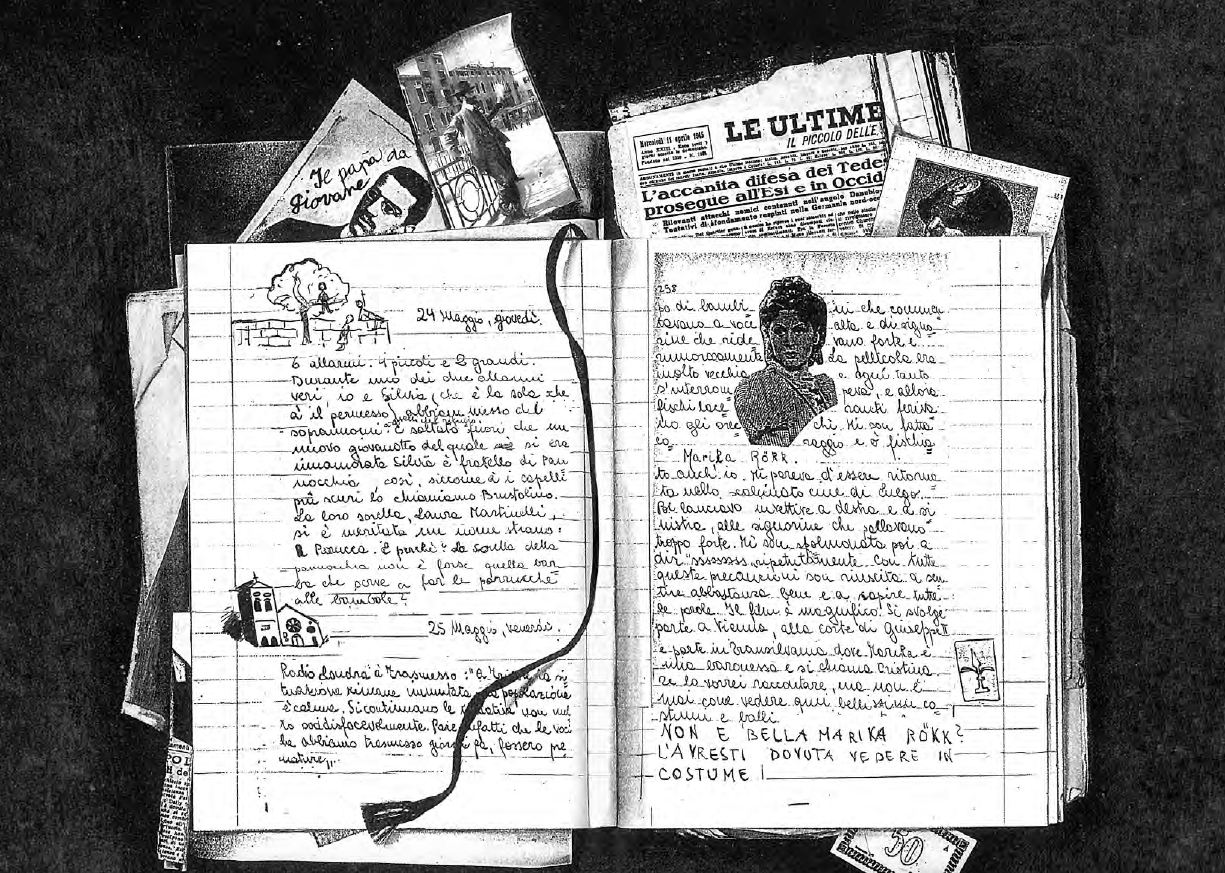 Il papà da
giovane
Mercoledì 11 aprile 1945
LE ULTIME
IL PICCOLO DELLE
L'accanita difesa dei Tede
prosegue all'Est e in Occid
Rilevanti attacchi nemici contenuti nell'angolo Danubio
Tentativi di sfondamento respinti nella Germania nord-oc
24 Maggio, giovedì.
6 allarmi. 4 piccoli e 2 grandi.
Durante uno dei due allarmi
veri, io e Silvia (che è la sola che
à il permesso) abbiam messo dei
soprannomi a quelli del rifugio.
È saltato fuori che un
nuovo giovanotto del quale si era
innamorata Silvia è fratello di Pan
nocchia, così, siccome à i capelli
più scuri lo chiamiamo Brustolino.
La loro sorella, Laura Martinelli,
si è meritata un nome strano:
Perucca. E perché? La sorella della
pannocchia non è forse quella bar
ba che serve a far le parrucche
alle bambole?
25 Maggio, venerdì.
Radio Londra à trasmesso: "A la si
tuazione rimane immutata la popolazione
è calma. Si continuano le trattative
soddisfacevolmente. Pare infatti che le voci
che abbiamo trasmesso giorni fa, fossero pre
mature"
258
po di bambini che commen
tavano a voce alta e di signo
rine che ridevano forte e
rumorosamente. La pellicola era
molto vecchia e ogni tanto
s'interrompeva, e allora
fischi laceranti feriva
no gli orecchi. Mi son fatta
coraggio e ò fischia
Marika RÖKK.
to anch'io. Mi pareva d'essere ritorna
ta nello scalcinato cine di
Poi lanciavo invettive a destra e a si
nistra, alle signorine che parlavano
troppo forte. Mi son spolmonata poi a
dir "sssssssss" ripetutamente. Con tutte
queste precauzioni son riuscita a sen
tire abbastanza bene e a capire tutte
le parole. Il film è magnifico! Si svolge
parte a Vienna, alla corte di Giuseppe II
e parte in Transilvania dove Marika è
una baronessa e si chiama Cristina
ve la vorrei raccontare, ma non è
mai come vedere quei bellissimi co
stumi e balli
NON È BELLA MARIKA RÖKK?
L'AVRESTI DOVUTA VEDERE IN
COSTUME!
50